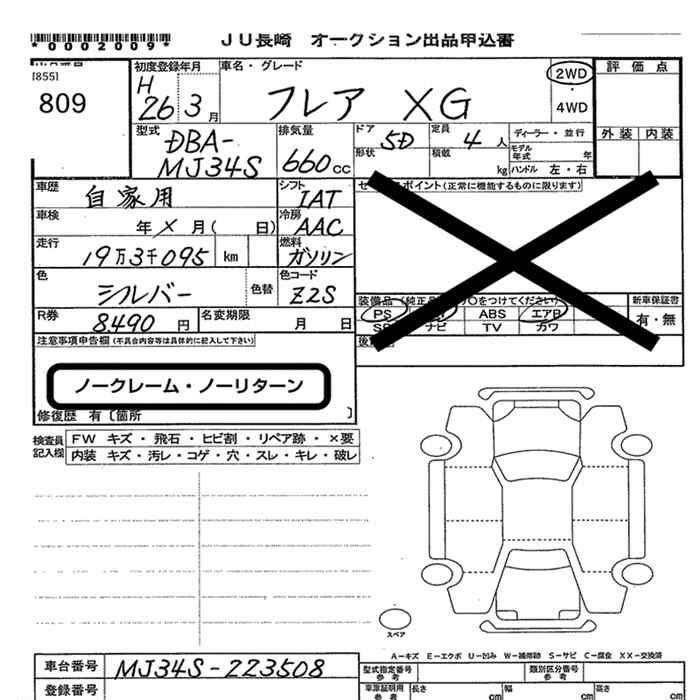 *0002009*
JU長崎 オークション出品申込書
[855]
809
初度登録年月
H 26 3月
車名・グレード
フレア XG
2WD
4WD
評価点
外装 内装
型式
DBA-
MJ34S
排気量
660cc
ドア
5D
形状
定員
4人
積載
kg
ディーラー・並行
モデル年式 年
ハンドル 左・右
車歴
自家用
シフト
IAT
車検
年 × 月( 日)
冷房
AAC
走行
19万3千095 km
燃料
ガソリン
色
シルバー
色替
色コード
Z2S
R券
8.490 円
名変期限
月 日
ポイント(正常に機能するものに限ります)
装備品(純正品 ○をつけてください)
PS ABS エアB
ナビ TV カワ
新車保証書
有・無
注意事項申告欄(不具合内容等は具体的に記入して下さい)
ノークレーム・ノーリターン
修復歴 有〔箇所 〕
検査員記入欄
FW キズ・飛石・ヒビ割・リペア跡・×要
内装 キズ・汚レ・コゲ・穴・スレ・キレ・破レ
スペア
A-キズ E-エクボ U-凹み W-補修跡 S-サビ C-腐食 XX-交換済
車台番号
MJ34S-223508
登録番号
型式指定番号
参考
類別区分番号
参考
車庫証明用
参考
長さ cm
幅 cm
高さ cm